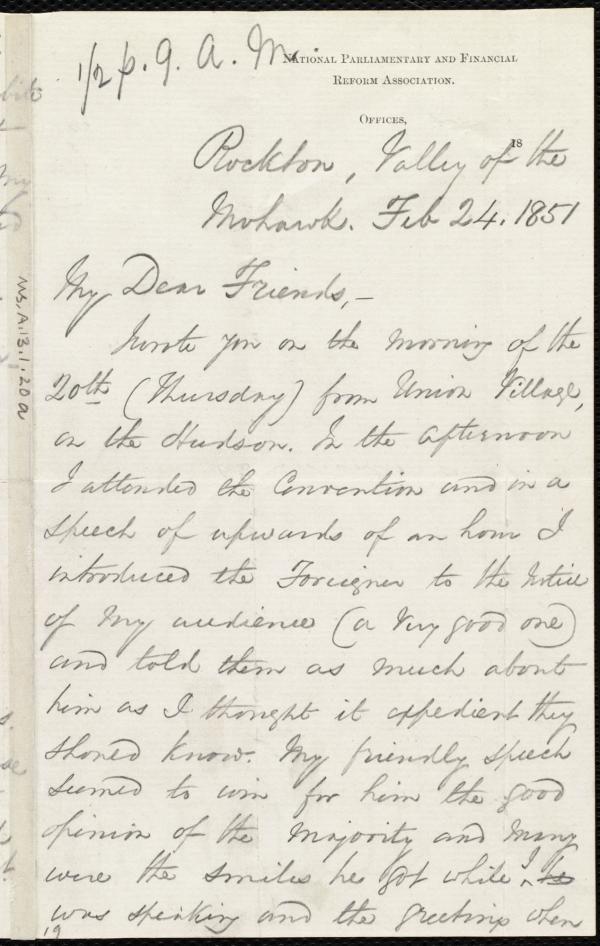 1/2 p. 9. A. M.
National Parliamentary and Financial
Reform Association.
Offices,
18
Rockton, Valley of the
Mohawk. Feb 24. 1851
My Dear Friends,—
I wrote you on the morning of the
20th (Thursday) from Union Village,
on the Hudson. In the afternoon
I attended the Convention and in a
speech of upwards of an hour I
introduced the Foreigner to the notice
of my audience (a very good one)
and told them as much about
him as I thought it expedient they
should know. My friendly speech
seemed to win for him the good
opinion of the majority and many
were the smiles he got while I he
was speaking and the greetings when
19
Ms. A.1.3.1.20a